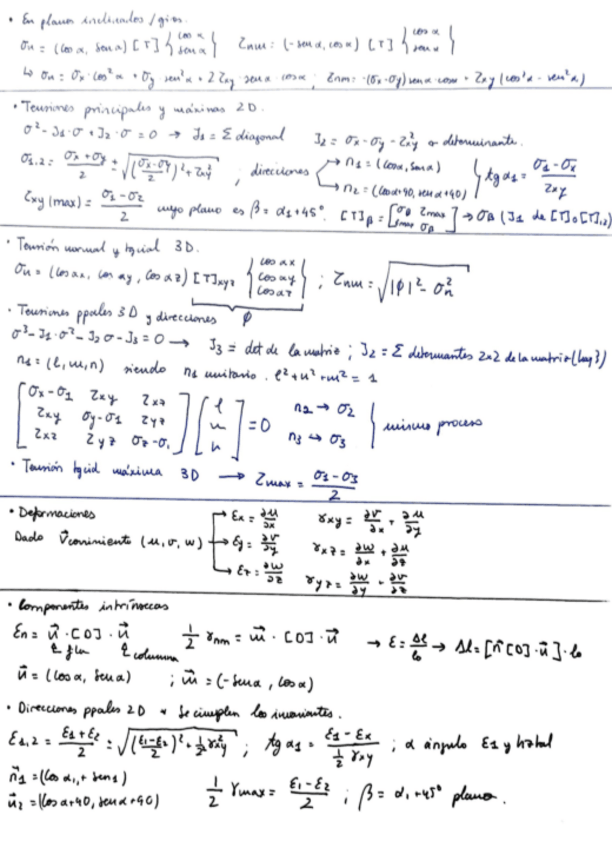 • En planos inclinados / giros.
σn = (cos α, sen α) [T] {cos α sen α}   τnm = (-sen α, cos α) [T] {cos α sen α}
↳ σn = σx · cos² α + σy sen² α + 2 τxy · sen α · cos α ; τnm = -(σx - σy) sen α · cos α + τxy (cos² α - sen² α)
• Tensiones principales y máximas 2D.
σ² - J1 · σ + J2 · σ = 0 → J1 = Σ diagonal   J2 = σx - σy - τ²xy o determinante.
σ1,2 = (σx + σy)/2 ± √((σx - σy)/2)² + τ²xy ; direcciones → n1 = (cos α, sen α) → n2 = (cos α+90, sen α+90) } tg α1 = (σ1 - σx)/τxy
τxy (max) = (σ1 - σ2)/2 cuyo plano es β = α1 + 45°. [T]β = [σβ τmax τmax σβ] → σβ (J1 de [T] o [T]1,2)
• Tensión normal y tgcial 3D.
σn = (cos αx, cos αy, cos αz) [T]xyz {cos αx cos αy cos αz} ; τnm = √|ϕ|² - σ²n
ϕ
• Tensiones ppales 3D y direcciones
σ³ - J1 · σ² - J2 σ - J3 = 0 → J3 = det de la matriz ; J2 = Σ determinantes 2x2 de la matriz (hay 3)
n1 = (l, m, n) siendo n1 unitario. l² + n² + m² = 1
[σx - σ1 τxy τxz] [l]   n2 → σ2
[τxy σy - σ1 τyz] [m] = 0   } mismo proceso
[τxz τyz σz - σ1] [n]   n3 → σ3
• Tensión tgcial máxima 3D → τmax = (σ1 - σ3)/2
• Deformaciones → εx = ∂u/∂x   γxy = ∂v/∂x + ∂u/∂y
Dado V (u, v, w) → εy = ∂v/∂y   γxz = ∂w/∂x + ∂u/∂z
→ εz = ∂w/∂z   γyz = ∂w/∂y + ∂v/∂z
• Componentes intrínsecas
εn = n⃗ · [D] · n⃗   1/2 γnm = m⃗ · [D] · n⃗ → ε = Δl/l0 → Δl = [n⃗ [D] · n⃗] · l0
fila   columna
n⃗ = (cos α, sen α) ; m⃗ = (-sen α, cos α)
• Direcciones ppales 2D * Se cumplen los invariantes.
ε1,2 = (ε1 + ε2)/2 ± √((ε1 - ε2)/2)² + 1/2 γ²xy ; tg α1 = (ε1 - εx)/(1/2 γxy) ; α ángulo ε1 y hztal
n⃗1 = (cos α1, + sen 1)   1/2 γmax = (ε1 - ε2)/2 ; β = α1 + 45° plano.
n⃗2 = (cos α+90, sen α+90)